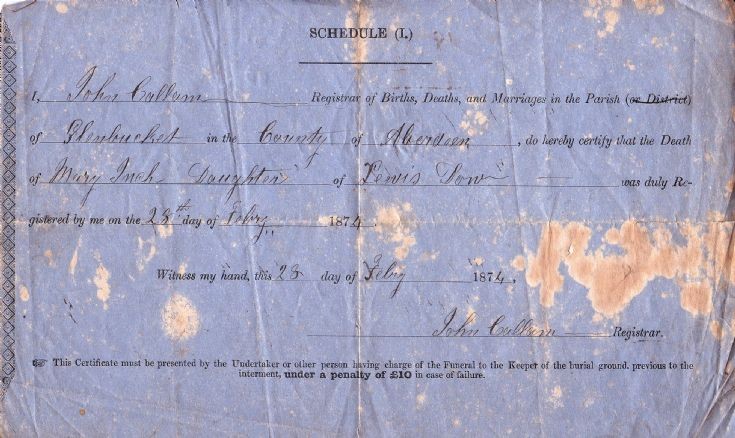 SCHEDULE (I.)
I, John Callum Registrar of Births, Deaths, and Marriages in the Parish (or District)
of Glenbucket in the County of Aberdeen, do hereby certify that the Death
of Mary Inch Daughter of Lewis Dow was duly Re-
gistered by me on the 28th day of Feby 1874.
Witness my hand, this 28 day of Feby 1874,
John Callum Registrar.
☞ This Certificate must be presented by the Undertaker or other person having charge of the Funeral to the Keeper of the burial ground, previous to the
interment, under a penalty of £10 in case of failure.